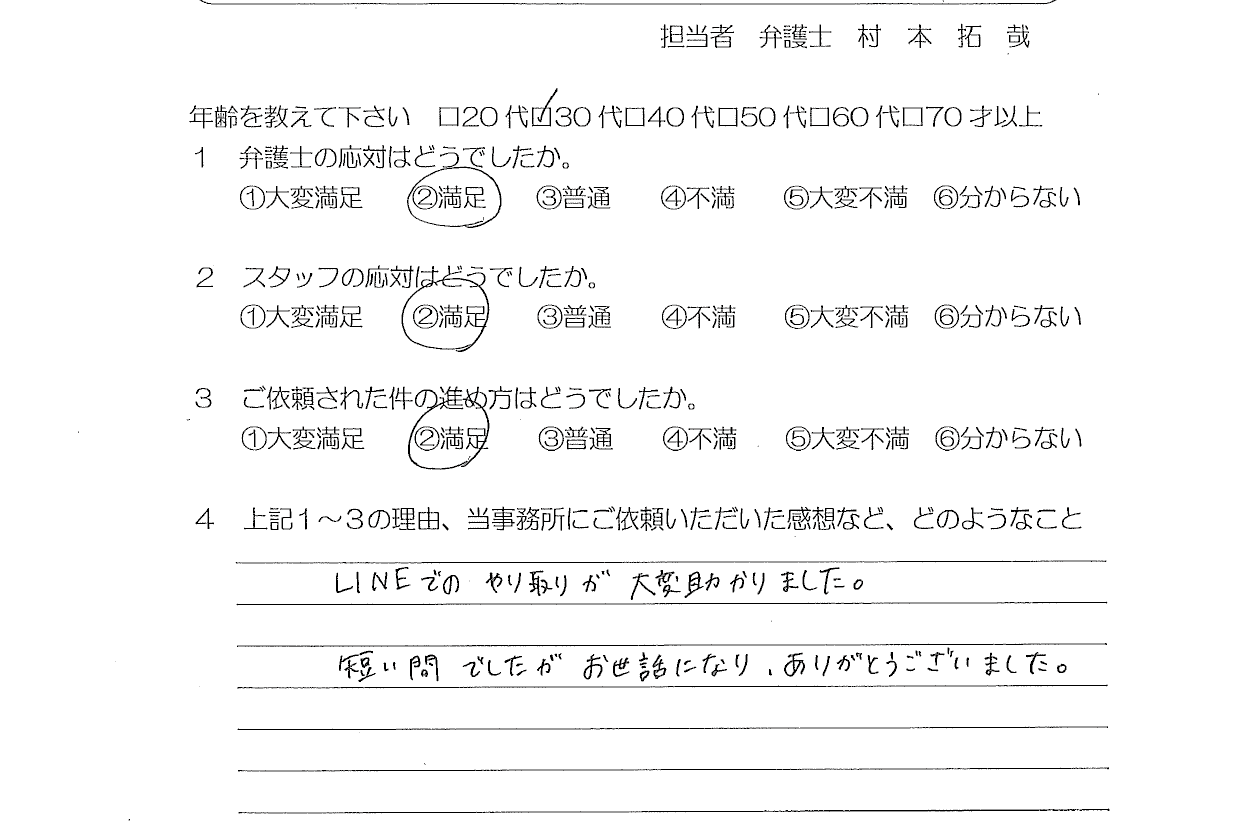 担当者　弁護士　村　本　拓　哉
年齢を教えて下さい　□20代☑30代□40代□50代□60代□70才以上
１　弁護士の応対はどうでしたか。
①大変満足　②満足　③普通　④不満　⑤大変不満　⑥分からない
２　スタッフの応対はどうでしたか。
①大変満足　②満足　③普通　④不満　⑤大変不満　⑥分からない
３　ご依頼された件の進め方はどうでしたか。
①大変満足　②満足　③普通　④不満　⑤大変不満　⑥分からない
４　上記１～３の理由、当事務所にご依頼いただいた感想など、どのようなこと
LINEでの やり取りが 大変助かりました。
短い間 でしたが お世話になり、ありがとうございました。